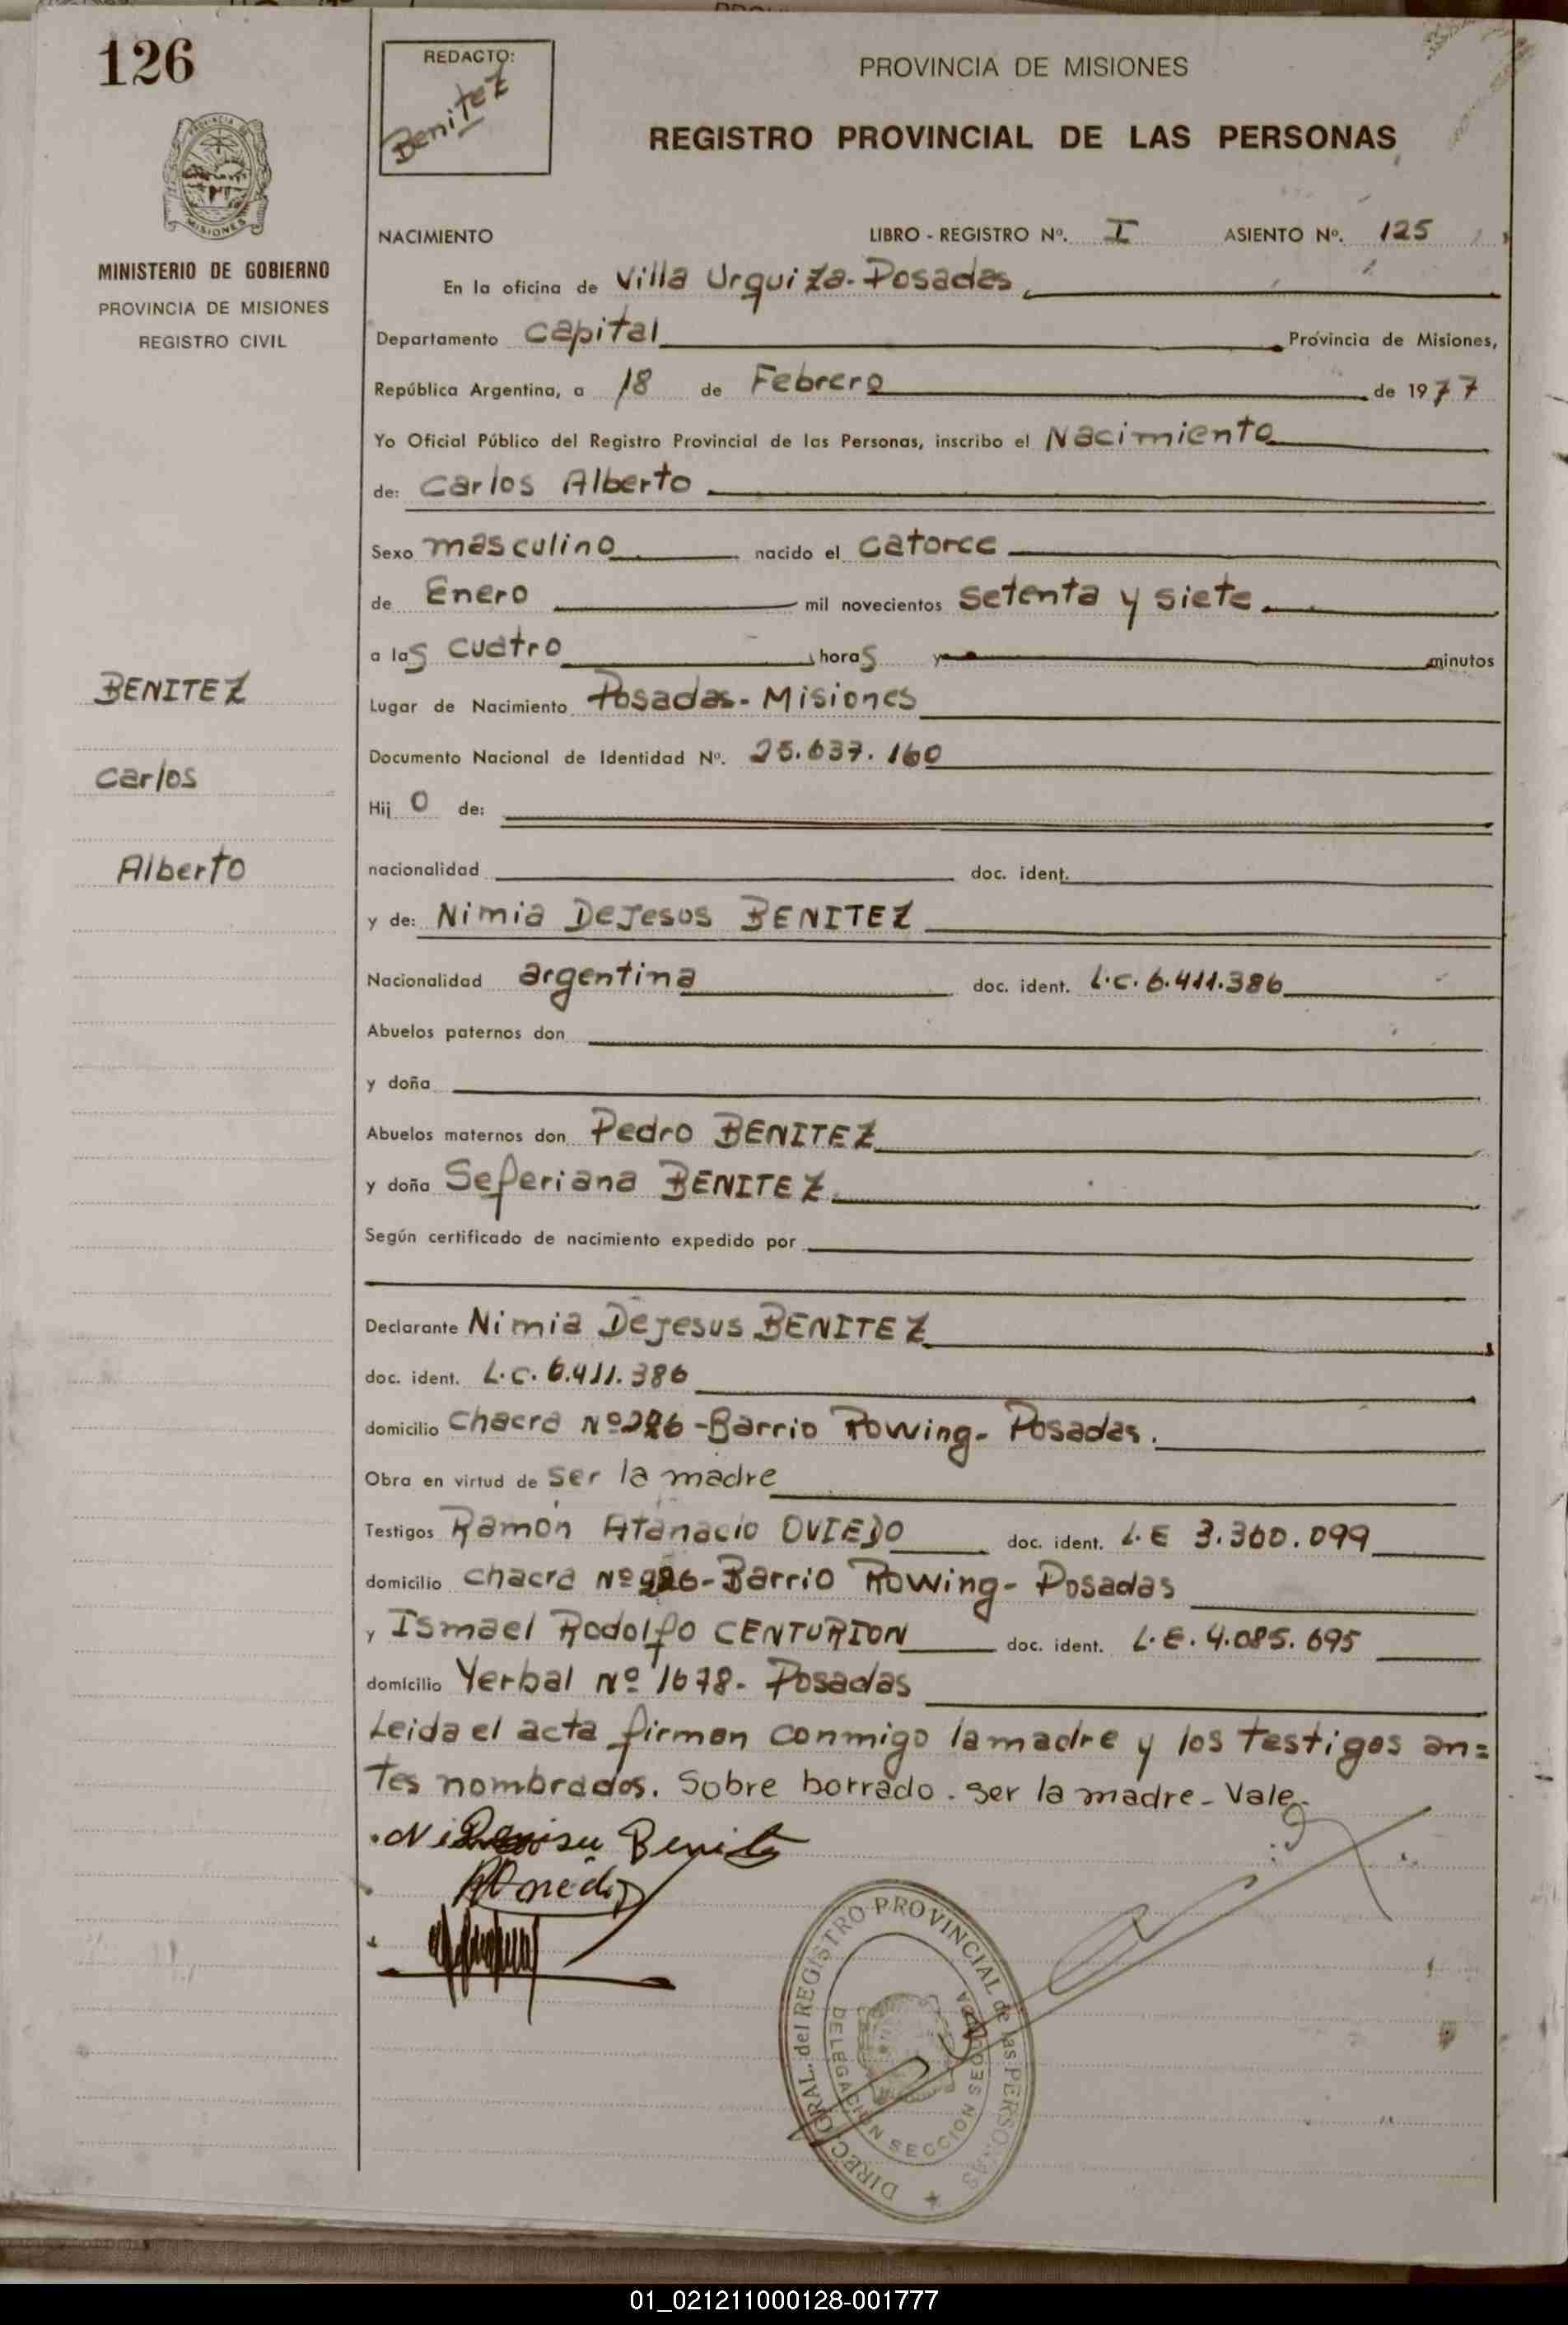 126
REDACTO:
Benitez
PROVINCIA DE MISIONES
REGISTRO PROVINCIAL DE LAS PERSONAS
MISIONES
MINISTERIO DE GOBIERNO
PROVINCIA DE MISIONES
REGISTRO CIVIL
NACIMIENTO LIBRO - REGISTRO Nº. I ASIENTO Nº. 125
En la oficina de Villa Urquiza-Posadas
Departamento Capital Provincia de Misiones,
República Argentina, a 18 de Febrero de 1977
Yo Oficial Público del Registro Provincial de las Personas, inscribo el Nacimiento
de: Carlos Alberto
Sexo masculino nacido el catorce
de Enero mil novecientos setenta y siete
a las cuatro horas y minutos
BENITEZ
Lugar de Nacimiento Posadas-Misiones
Documento Nacional de Identidad Nº. 25.637.160
Carlos
Hij o de:
Alberto
nacionalidad doc. ident.
y de: Nimia DeJesos BENITEZ
Nacionalidad argentina doc. ident. L.C. 6.411.386
Abuelos paternos don
y doña
Abuelos maternos don Pedro BENITEZ
y doña Seferiana BENITEZ
Según certificado de nacimiento expedido por
Declarante Nimia DeJesus BENITEZ
doc. ident. L.C. 6.411.386
domicilio Chacra Nº -Barrio Rowing- Posadas.
Obra en virtud de ser la madre
Testigos Ramón Atanacio OVIEDO doc. ident. L.E 3.360.099
domicilio chacra Nº -Barrio Rowing- Posadas
y Ismael Rodolfo CENTURION doc. ident. L.E. 4.085.695
domicilio Yerbal Nº 1678- Posadas
Leida el acta firman conmigo la madre y los testigos an=
tes nombrados. Sobre borrado. ser la madre- Vale-
Benitez
DIREC. GRAL. del REGISTRO PROVINCIAL de las PERSONAS
DELEGACION SECCION SEGUNDA
01_021211000128-001777